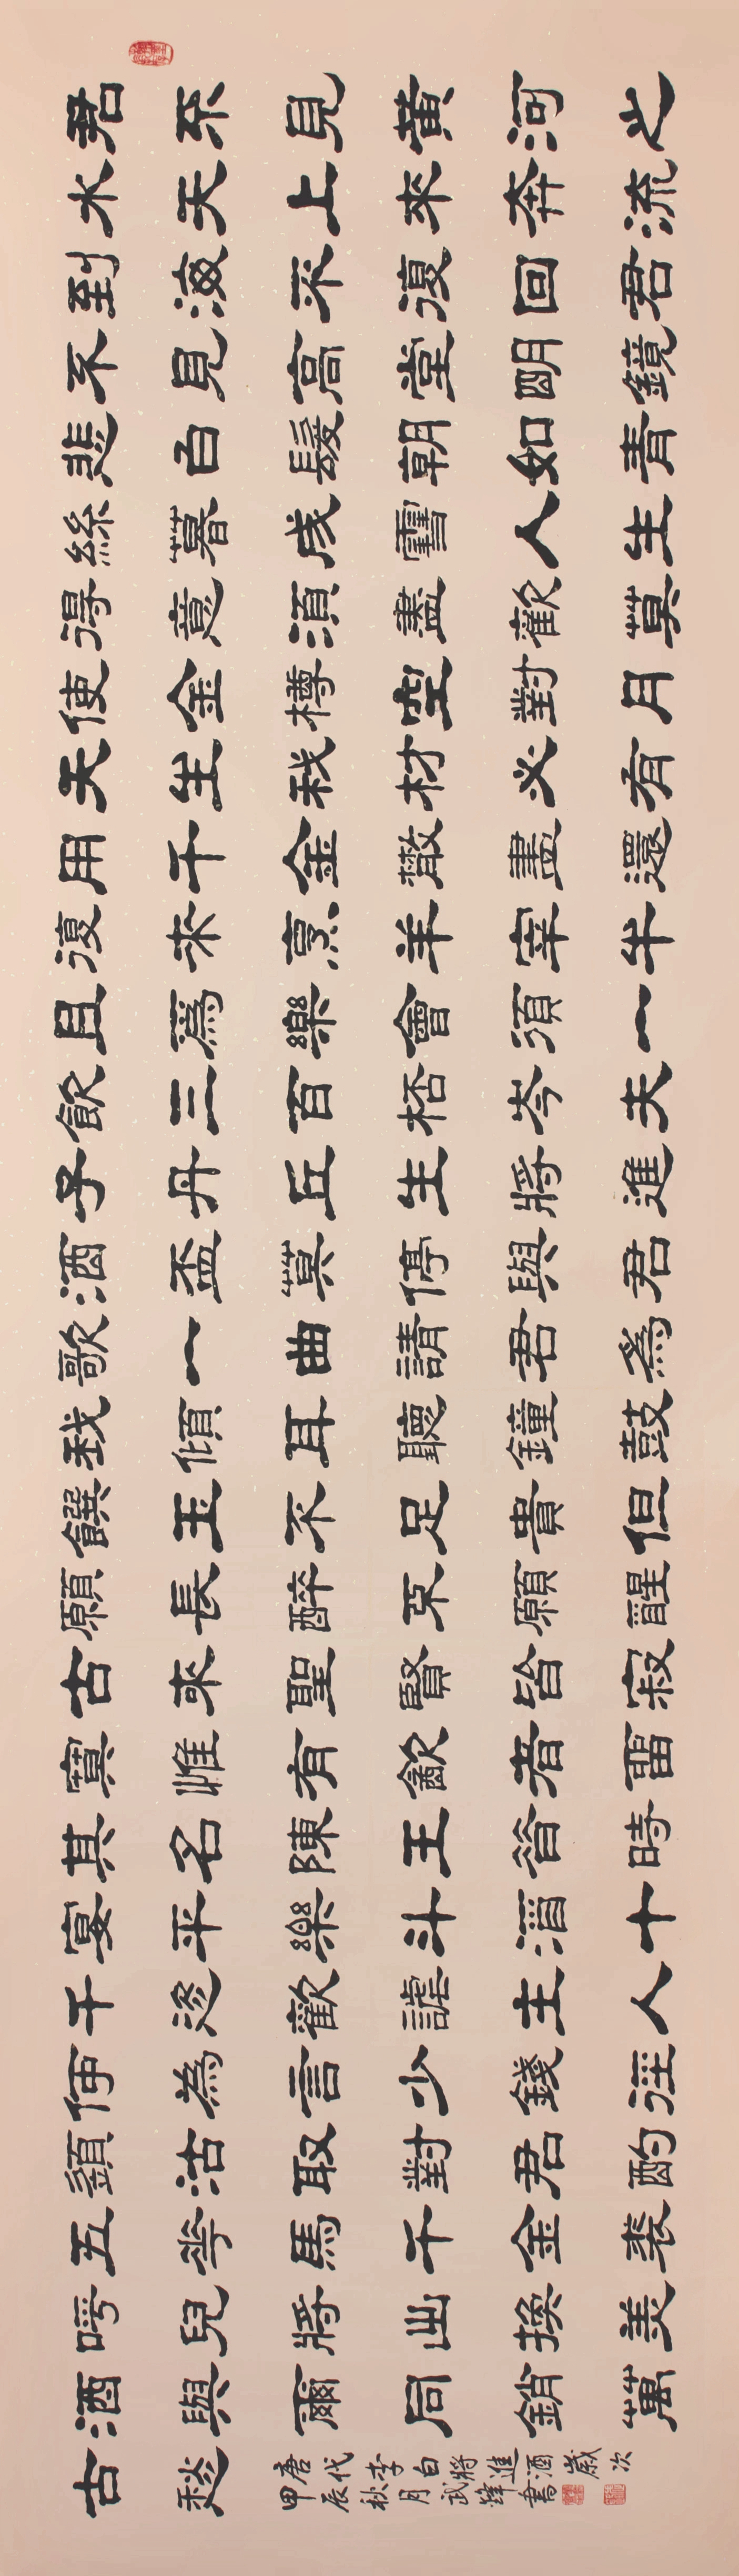 君不見黃河之
水天上來奔流
到海不復回君
不見高堂明鏡
悲白髮朝如青
絲暮成雪人生
得意須盡歡莫
使金樽空對月
天生我材必有
用千金散盡還
復來烹羊宰牛
且爲樂會須一
飲三百桮岑夫
子丹丘生將進
酒盃莫停與君
歌一曲請君為
我傾耳聽鐘鼓
饌玉不足貴但
願長醉不願醒
古來聖賢皆寂
寞惟有飲者留
其名陳王昔時
宴平樂斗酒十
千恣歡謔主人
何為言少錢徑
須沽取對君酌
五華馬千金裘
呼兒將出換美
酒與爾同銷萬
古愁
唐代李白將進酒歲次
甲辰秋月武鋒書